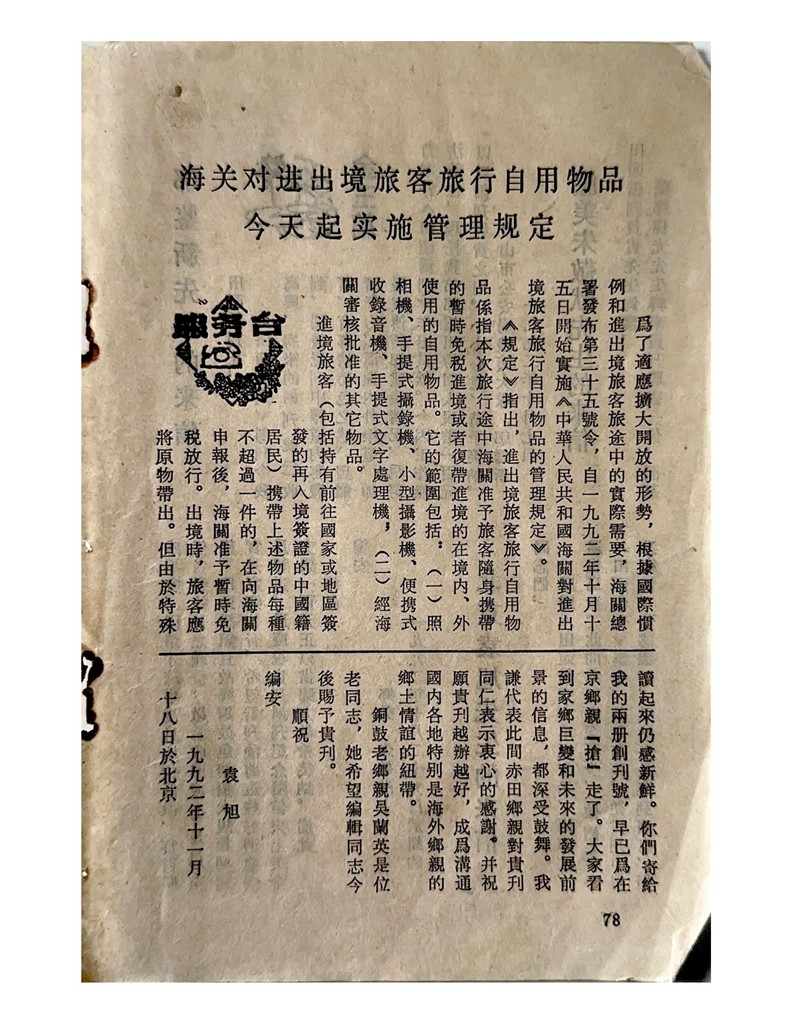 海关对进出境旅客旅行自用物品
今天起实施管理规定
爲了適應擴大開放的形勢，根據國際慣
例和進出境旅客旅途中的實際需要，海關總
署發布第三十五號令，自一九九二年十月十
五日開始實施《中華人民共和國海關對進出
境旅客旅行自用物品的管理規定》。
《規定》指出，進出境旅客旅行自用物
品係指本次旅行途中海關准予旅客隨身携帶
的暫時免税進境或者復帶進境的在境内、外
使用的自用物品。它的範圍包括：（一）照
相機、手提式攝錄機、小型攝影機、便携式
收錄音機、手提式文字處理機；（二）經海
關審核批准的其它物品。
進境旅客（包括持有前往國家或地區簽
發的再入境簽證的中國籍
居民）携帶上述物品每種
不超過一件的，在向海關
申報後，海關准予暫時免
税放行。出境時，旅客應
將原物帶出。但由於特殊
服务台
讀起來仍感新鮮。你們寄給
我的兩册創刊號，早已爲在
京鄉親「搶」走了。大家看
到家鄉巨變和未來的發展前
景的信息，都深受鼓舞。我
謙代表此間赤田鄉親對貴刊
同仁表示衷心的感謝。并祝
願貴刊越辦越好，成爲溝通
國内各地特别是海外鄉親的
鄉土情誼的紐帶。
銅鼓老鄉親吴蘭英是位
老同志，她希望編輯同志今
後賜予貴刊。
順祝
編安
袁旭
一九九二年十一月
十八日於北京
78